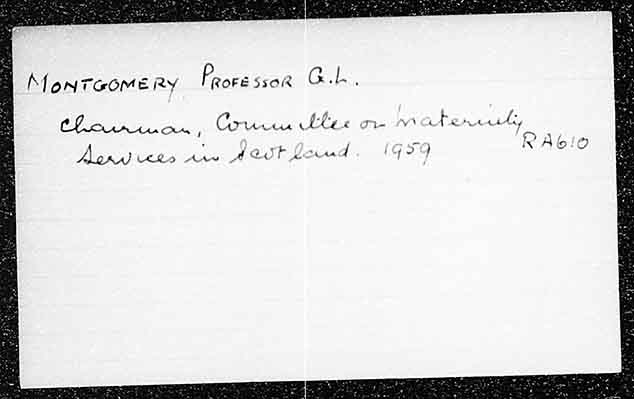 MONTGOMERY, PROFESSOR G.L.
Chairman, Committee on Maternity
Services in Scotland. 1959 RA610